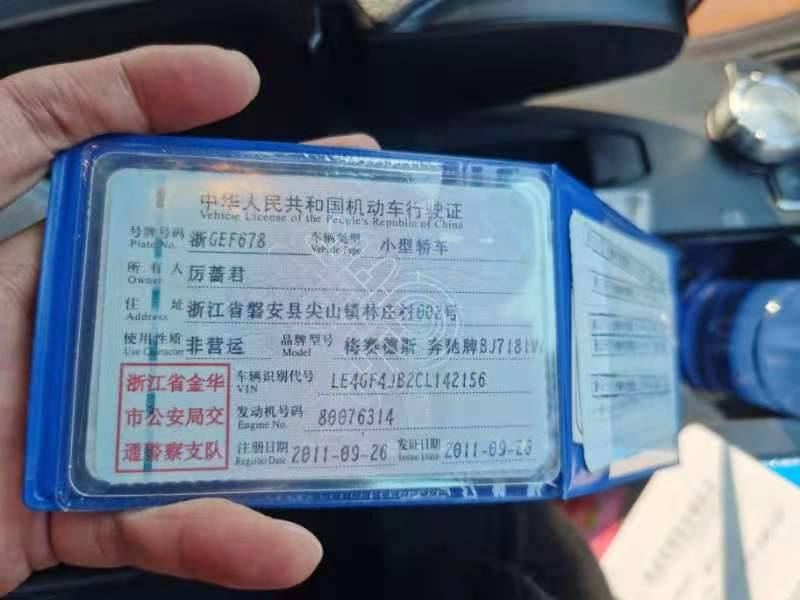 中华人民共和国机动车行驶证
Vehicle License of the People's Republic of China
号牌号码 浙GEF678 车辆类型 小型轿车
Plate No. Vehicle Type
所有人 厉蔷君
Owner
住址 浙江省磐安县尖山镇林庄村602号
Address
使用性质 非营运 品牌型号 梅赛德斯 奔驰牌BJ7181V
Use Character Model
浙江省金华
市公安局交
通警察支队
车辆识别代号 LE4GF4JB2CL142156
VIN
发动机号码 80076314
Engine No.
注册日期 2011-09-26 发证日期 2011-09-26
Register Date Issue Date